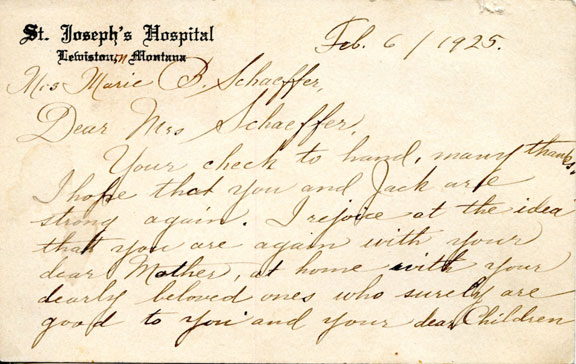 St. Joseph's Hospital
Lewistown, Montana
Feb. 6/1925.
Mrs Marie P. Schaeffer,
Dear Mrs Schaeffer,
Your check to hand, many thanks,
I hope that you and Jack are
strong again. I rejoice at the idea
that you are again with your
dear Mother, at home with your
dearly beloved ones who surely are
good to you and your dear Children